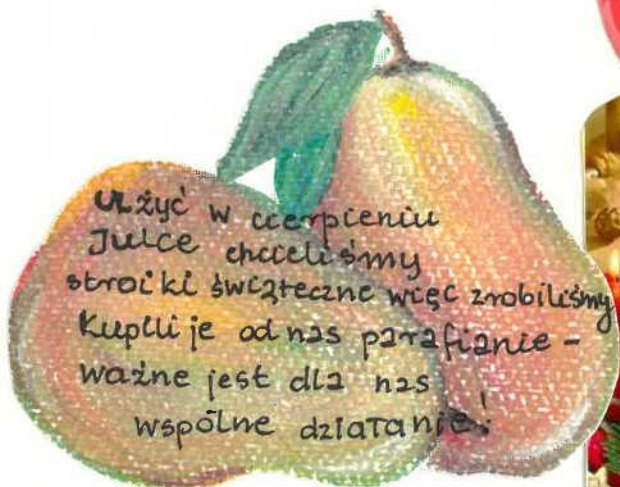 Ulżyć w cierpieniu
Julce chcieliśmy
stroiki świąteczne więc zrobiliśmy
Kupili je od nas parafianie -
ważne jest dla nas
wspólne działanie!